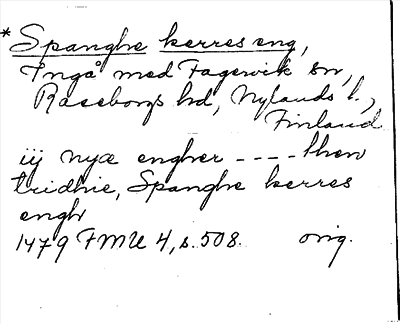 *Spanghe kerres eng,
Ingå med Fagervik sn,
Raseborgs hd, Nylands l.,
Finland
iij nyæ engher - - - - then
tridhie, Spanghe kerres
engh
1479 FMU 4, s. 508. orig.